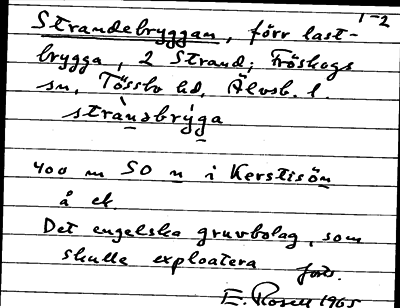 1-2
Strandebryggan, förr last-
brygga, 2 Strand; Fröskogs
sn, Tössbo hd, Älvsb. l.
stràndsbrýga
400 m SO n i Kerstisön
å ek.
Det engelska gruvbolag, som
skulle exploatera forts.
E. Rosell 1965